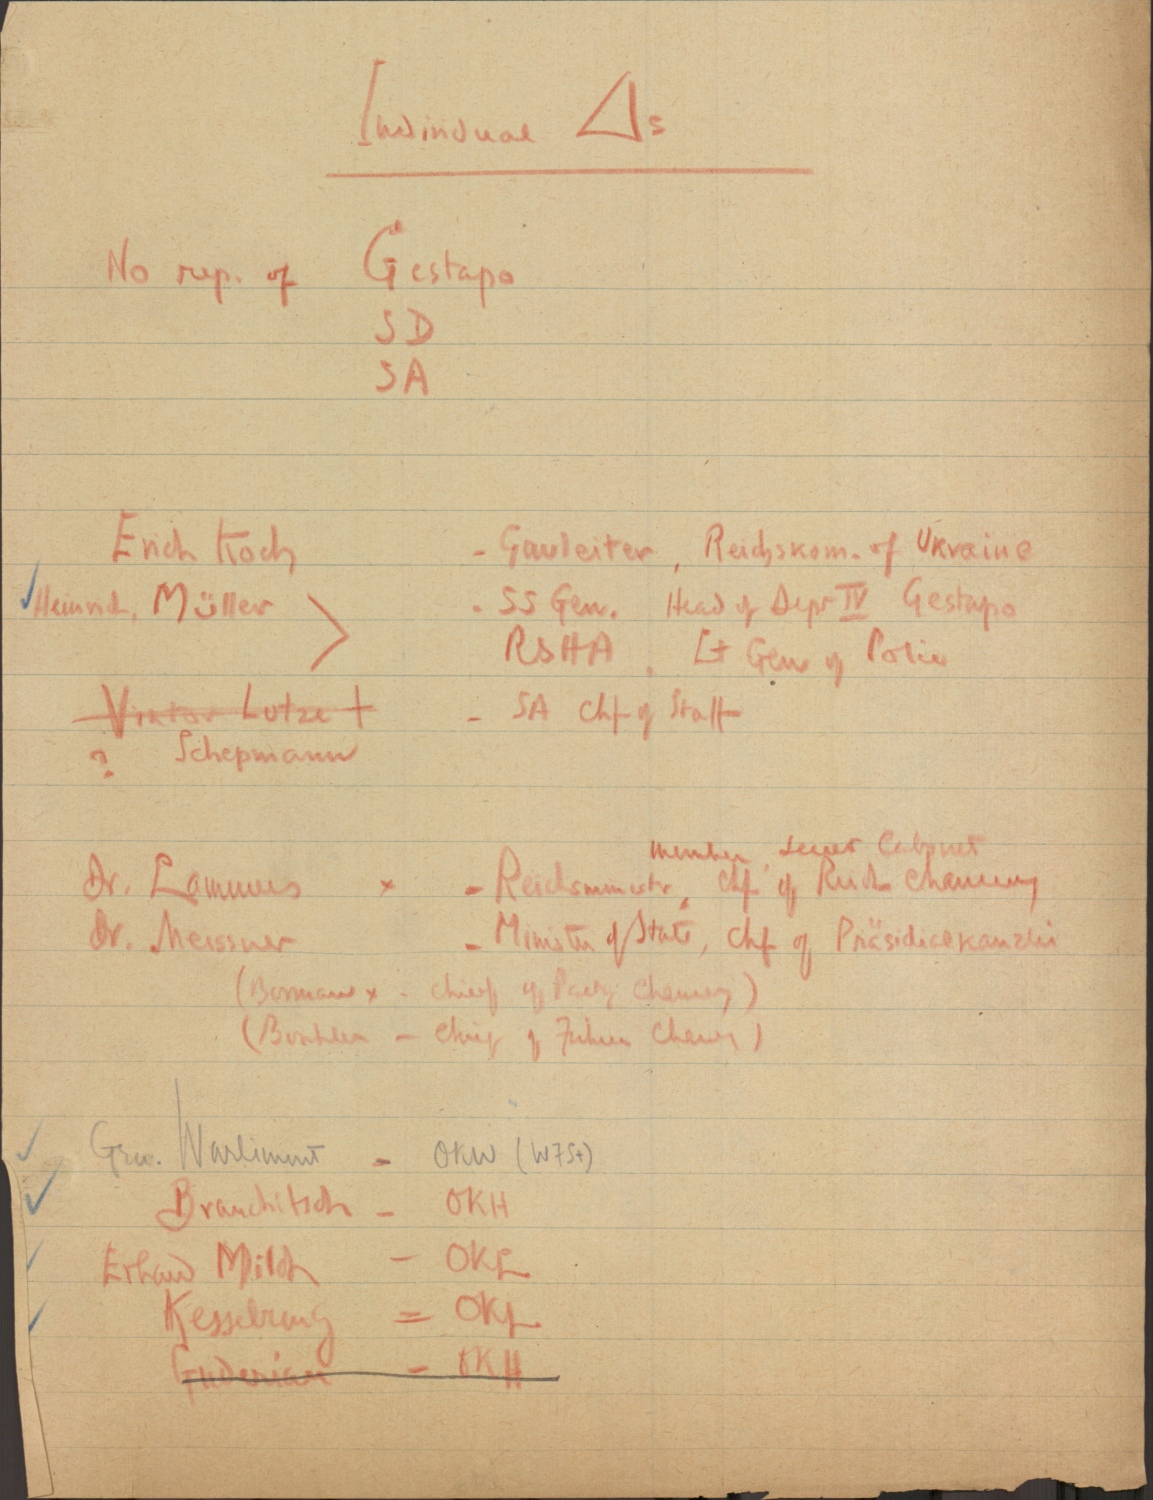 Individual Δs
No rep. of Gestapo
SD
SA
Erich Koch - Gauleiter, Reichskom. of Ukraine
Heinrich Müller - SS Gen. Head of Dept IV Gestapo
RSHA, Lt Gen of Police
Viktor Lutze † - SA Chf of Staff
? Schepmann
member, secret Cabinet
Dr. Lammers x - Reichsminister, Chf of Reich Chancery
Dr. Meissner - Minister of State, Chf of Präsidialkanzlei
(Bormann x - Chief of Party Chancery)
(Bouhler - Chief of Führer Chancy)
Gen. Warlimont - OKW (WFSt)
Brauchitsch - OKH
Erhard Milch - OKL
Kesselring = OKL
Guderian - OKH